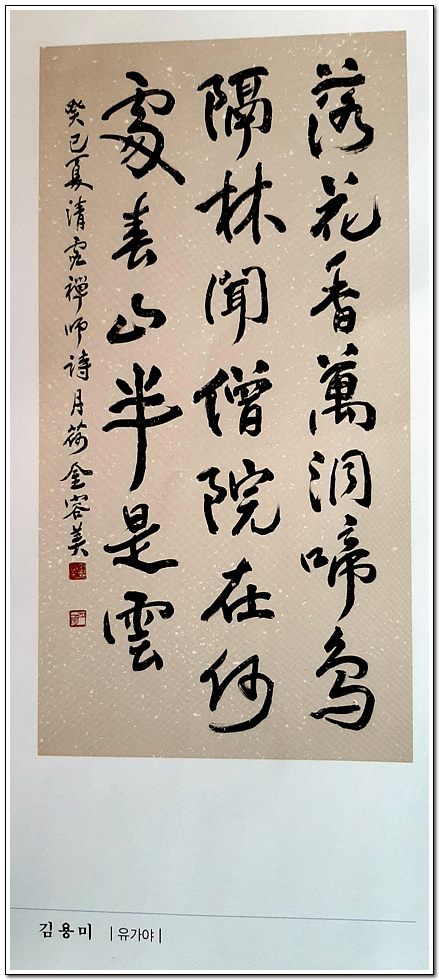 落花香萬洞啼鳥
隔林聞僧院在何
處春山半是雲
癸巳夏清虛禪師詩月荷金容美
김용미 | 유가야 |